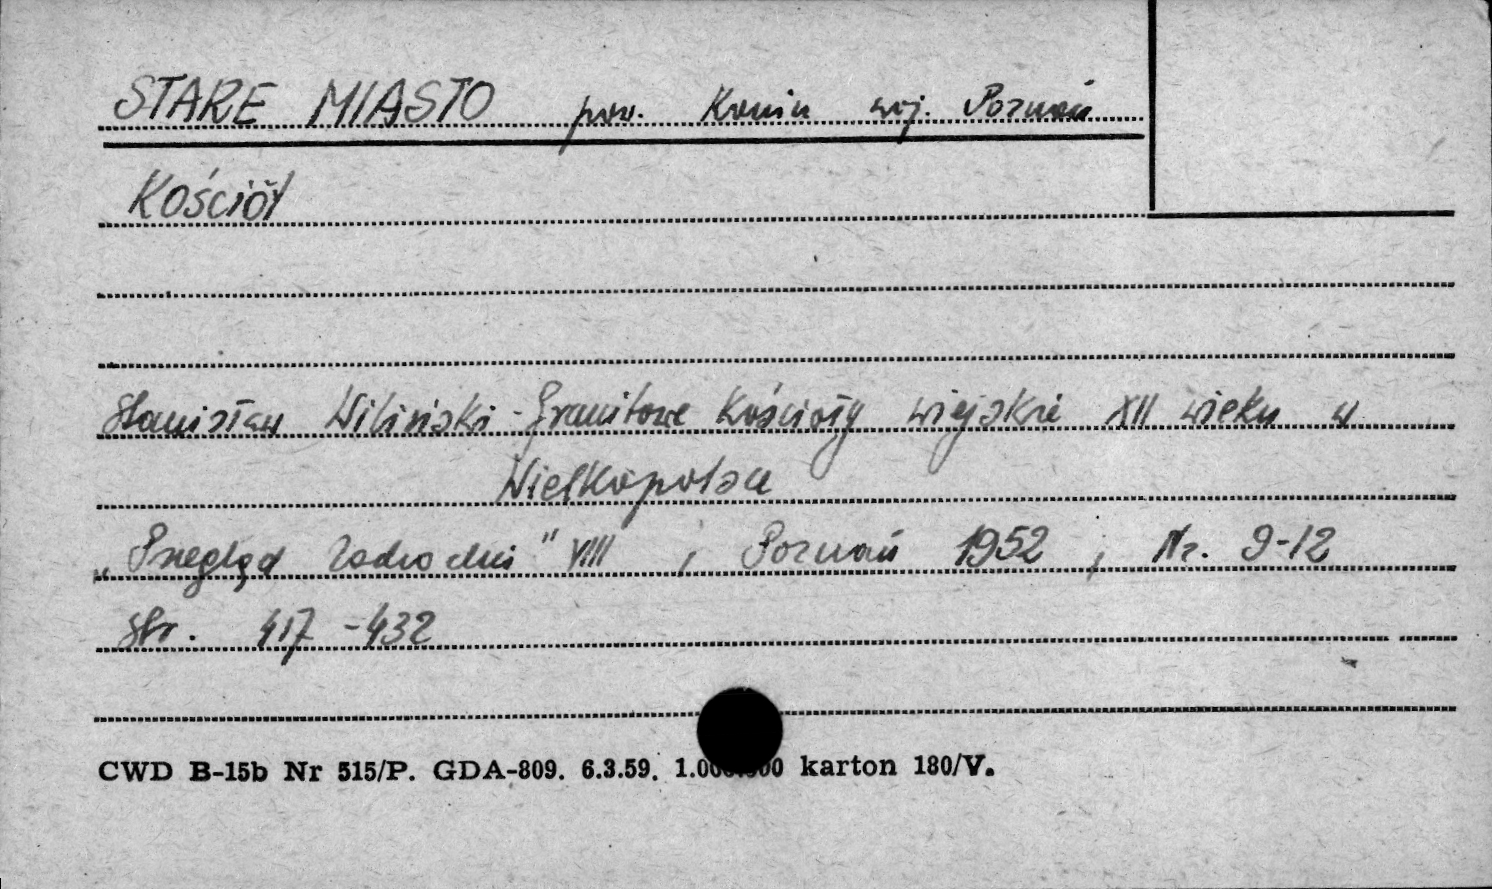 STARE MIASTO pow. Konin woj. Poznań
Kościół
Stanisław Wiliński - Granitowe kościoły wiejskie XII wieku w
Wielkopolsce
„Przegląd Zachodni" VIII, Poznań 1952; Nr. 9-12
str. 417-432
CWD B-15b Nr 515/P. GDA-809. 6.3.59. karton 180/V.